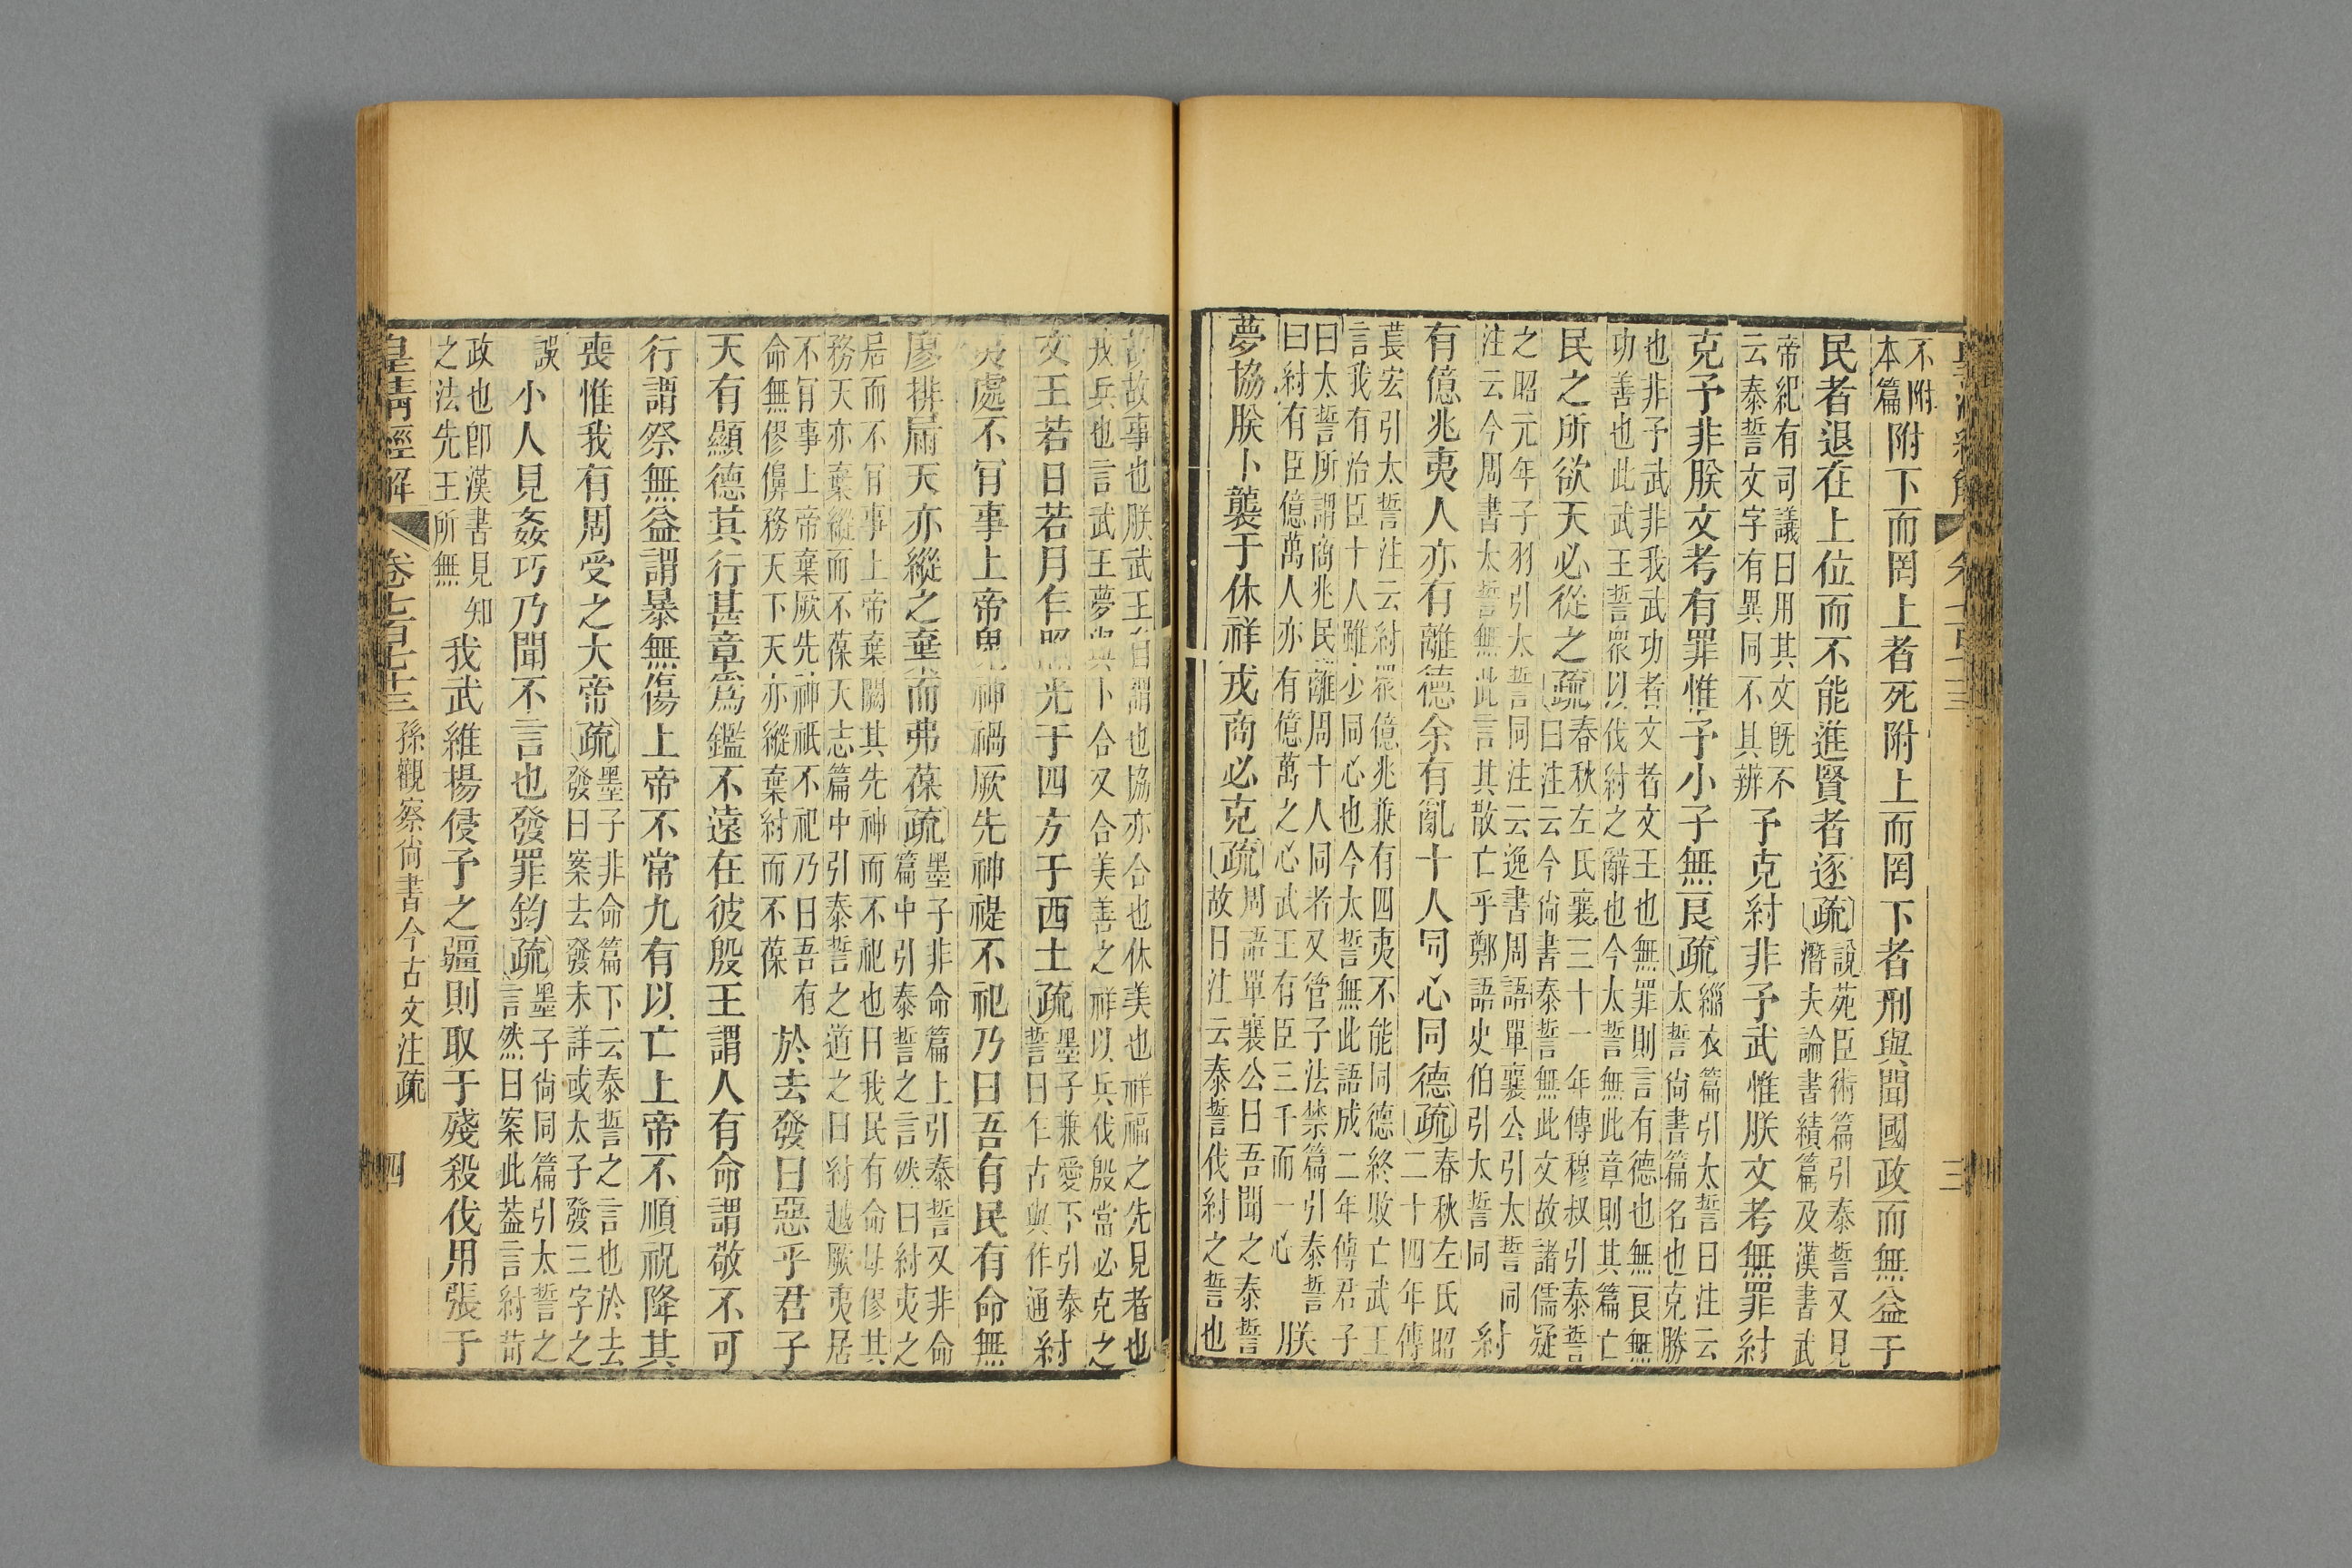 不附
本篇附下而罔上者死附上而罔下者刑與聞國政而無益于
民者退在上位而不能進賢者逐疏說苑臣術篇引泰誓又見
潛夫論書績篇及漢書武
帝紀有司議曰用其文既不
云泰誓文字有異同不其辨予克紂非予武惟朕文考無罪紂
克予非朕文考有罪惟予小子無良疏緇衣篇引太誓曰注云
太誓尙書篇名也克勝
也非予武非我武功者文者文王也無罪則言有德也無良無
功善也此武王誓眾以伐紂之辭也今太誓無此章則其篇亡
民之所欲天必從之疏春秋左氏襄三十一年傳穆叔引泰誓
曰注云今尙書泰誓無此文故諸儒疑
之昭元年子羽引太誓同注云逸書周語單襄公引太誓同
注云今周書太誓無此言其散亡乎鄭語史伯引太誓同紂
有億兆夷人亦有離德余有亂十人同心同德疏春秋左氏昭
二十四年傳
萇宏引太誓注云紂眾億兆兼有四夷不能同德終敗亡武王
言我有治臣十人雖少同心也今太誓無此語成二年傳君子
曰太誓所謂商兆民離周十人同者又管子法禁篇引泰誓
曰紂有臣億萬人亦有億萬之心武王有臣三千而一心朕
夢協朕卜襲于休祥戎商必克疏周語單襄公曰吾聞之泰誓
故曰注云泰誓伐紂之誓也
故故事也朕武王自謂也協亦合也休美也祥福之先見者也
戎兵也言武王夢與卜合又合美善之祥以兵伐殷當必克之
文王若日若月乍照光于四方于西土疏墨子兼愛下引泰
誓曰乍古與作通紂
夷處不肎事上帝鬼神禍厥先神禔不祀乃曰吾有民有命無
廖排屚天亦縱之棄而弗葆疏墨子非命篇上引泰誓又非命
篇中引泰誓之言然曰紂夷之
居而不肎事上帝棄闕其先神而不祀也曰我民有命毋僇其
務天亦棄縱而不葆天志篇中引泰誓之道之曰紂越厥夷居
不肎事上帝棄厥先神祇不祀乃曰吾有
命無僇𠏆務天下天亦縱棄紂而不葆於去發曰惡乎君子
天有顯德其行甚章爲鑑不遠在彼殷王謂人有命謂敬不可
行謂祭無益謂暴無傷上帝不常九有以亡上帝不順祝降其
喪惟我有周受之大帝疏墨子非命篇下云泰誓之言也於去
發曰案去發未詳或太子發三字之
誤小人見姦巧乃聞不言也發罪鈞疏墨子尙同篇引太誓之
言然曰案此葢言紂苛
政也卽漢書見知
之法先王所無我武維揚侵予之疆則取于殘殺伐用張于
皇清經解 卷七百七十三 孫觀察尙書今古文注疏 四